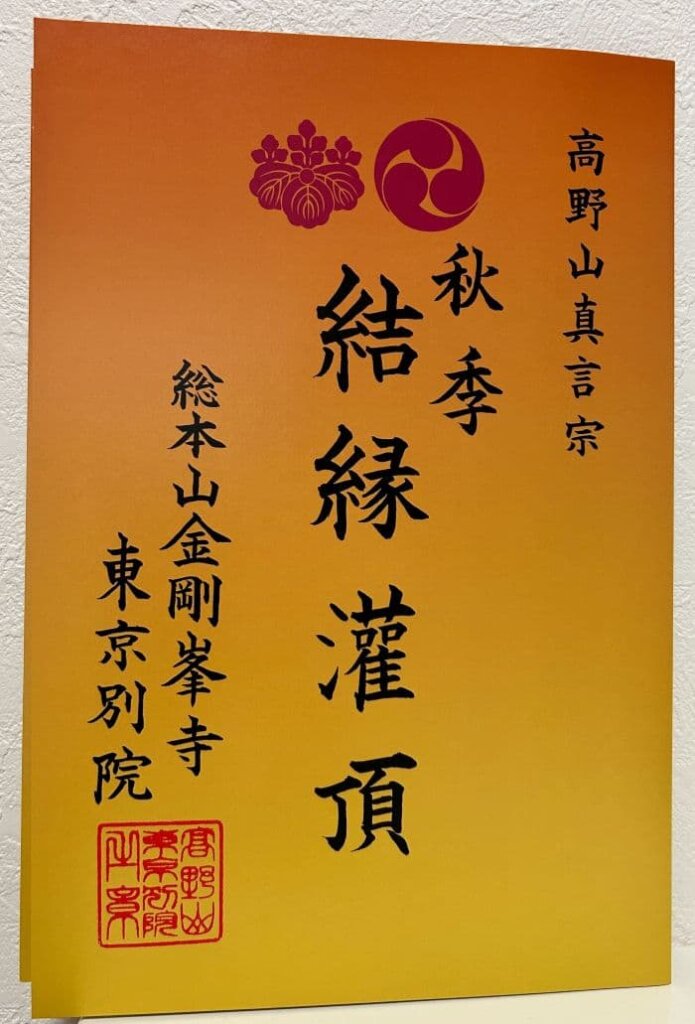 高野山真言宗
秋季
結縁灌頂
総本山金剛峯寺
東京別院
高野山
東京別院
之章